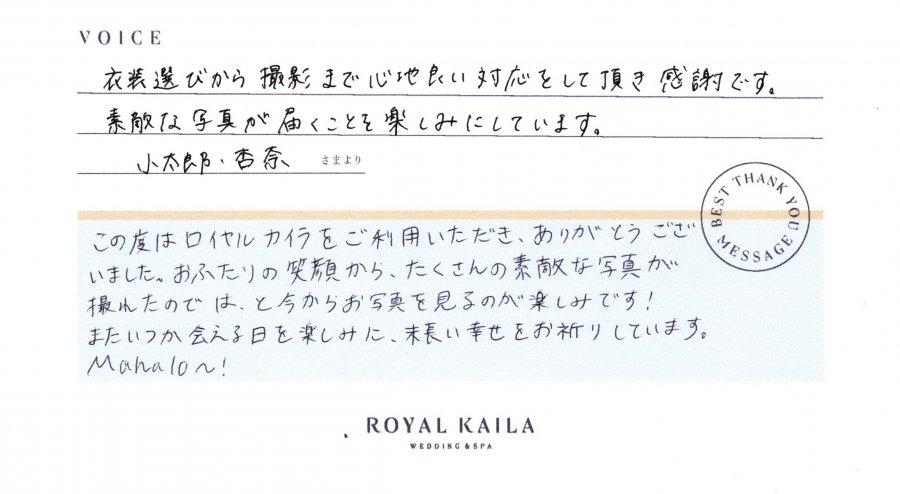 VOICE
衣装選びから撮影まで心地良い対応をして頂き感謝です。
素敵な写真が届くことを楽しみにしています。
小太郎・杏奈 さまより
BEST THANK YOU MESSAGE
この度はロイヤルカイラをご利用いただき、ありがとうござ
いました。おふたりの笑顔から、たくさんの素敵な写真が
撮れたのでは、と今からお写真を見るのが楽しみです!
またいつか会える日を楽しみに、末長い幸せをお祈りしています。
Mahalo~!
ROYAL KAILA
WEDDING & SPA